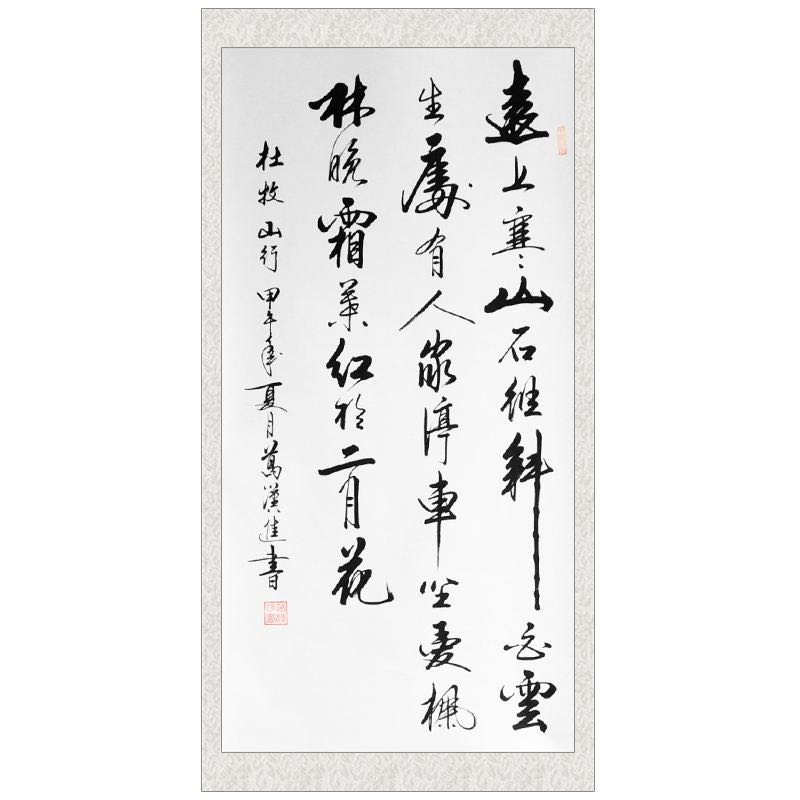 遠上寒山石徑斜白雲
生處有人家停車坐愛楓
林晚霜葉紅於二月花
杜牧山行甲午年夏月萬漢進書